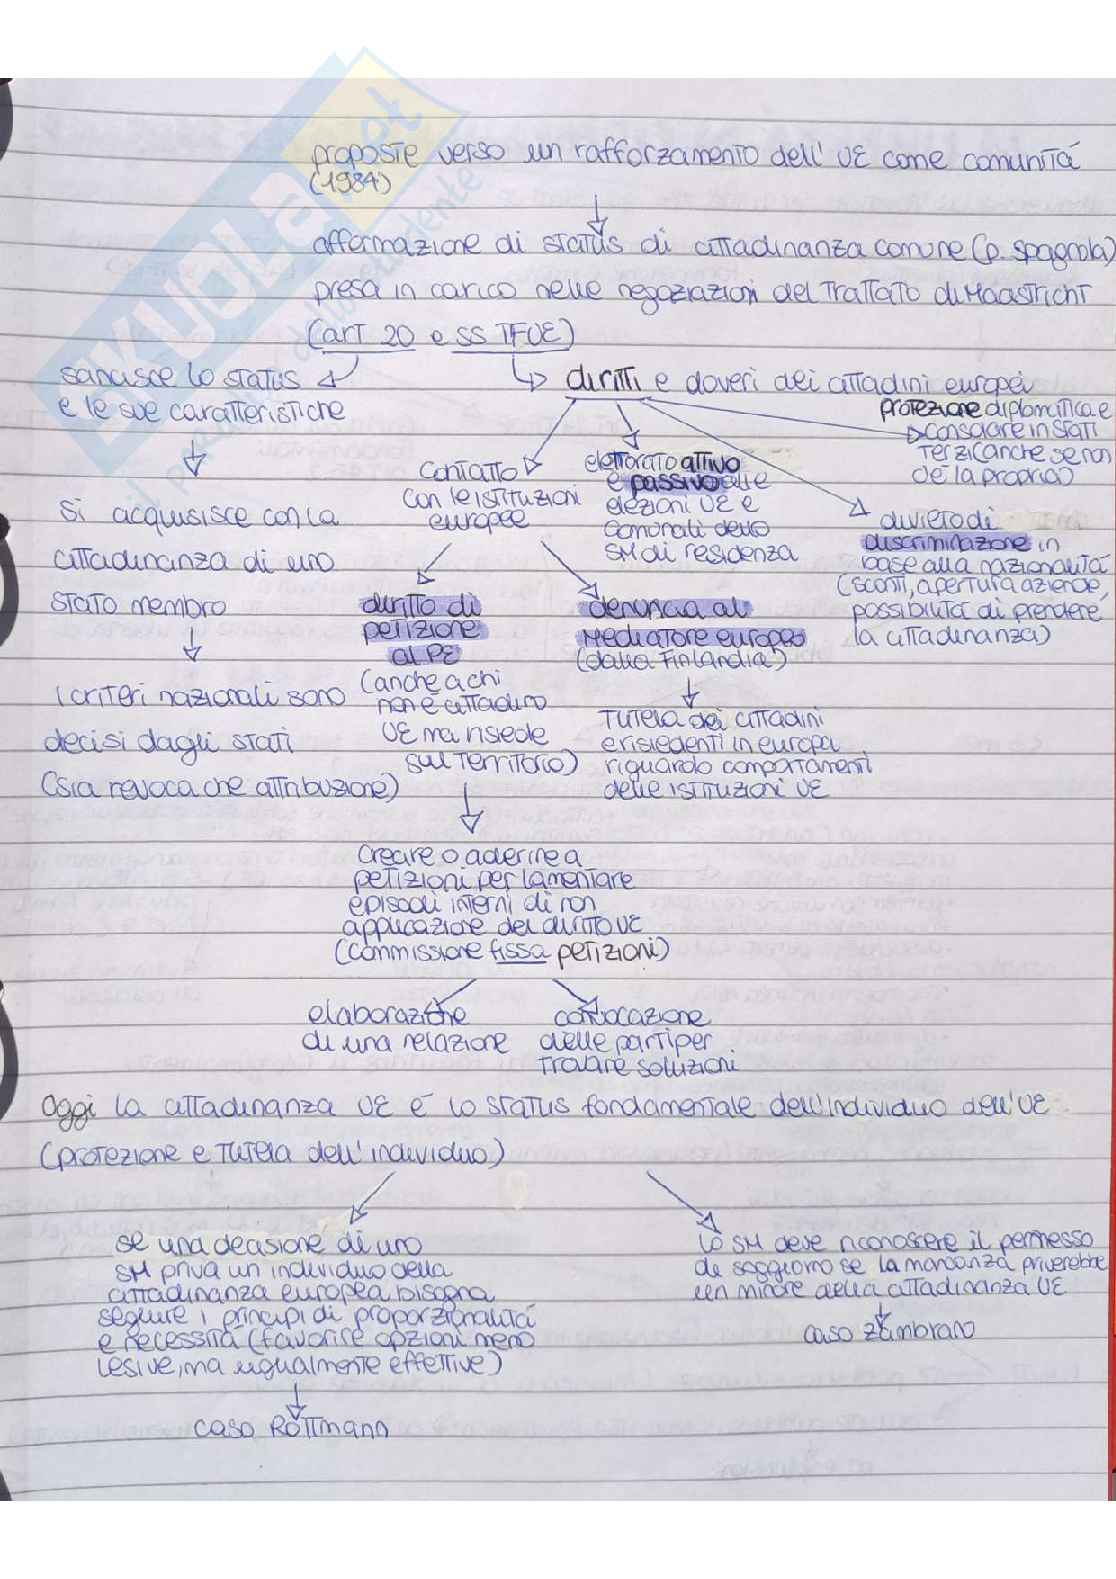 proposte verso un rafforzamento dell'UE come comunità
(1984)
affermazione di status di cittadinanza comune (p. spagnola)
presa in carico nelle negoziazioni del Trattato di Maastricht
(art 20 e ss TFUE)
sancisce lo status
e le sue caratteristiche
si acquisisce con la
cittadinanza di uno
stato membro
i criteri nazionali sono
decisi dagli stati
(sia revoca che attribuzione)
diritti e doveri dei cittadini europei
contatto
con le istituzioni
europee
elettorato attivo
e passivo alle
elezioni UE e
comunali dello
SM di residenza
protezione diplomatica e
consolare in stati
terzi (anche se non
c'è la propria)
divieto di
discriminazione in
base alla nazionalità
(sconti, apertura aziende,
possibilità di prendere
la cittadinanza)
diritto di
petizione
al PE
(anche a chi
non è cittadino
UE ma risiede
sul territorio)
denuncia al
Mediatore europeo
(dalla Finlandia)
tutela dei cittadini
e risiedenti in europa
riguardo comportamenti
delle istituzioni UE
creare o aderire a
petizioni per lamentare
episodi interni di non
applicazione del diritto UE
(commissione fissa petizioni)
elaborazione
di una relazione
convocazione
delle parti per
trovare soluzioni
Oggi la cittadinanza UE è lo status fondamentale dell'individuo dell'UE
(protezione e tutela dell'individuo)
se una decisione di uno
SM priva un individuo della
cittadinanza europea bisogna
seguire i principi di proporzionalità
e necessità (favorire opzioni meno
lesive, ma ugualmente effettive)
caso Rottmann
lo SM deve riconoscere il permesso
di soggiorno se la mancanza priverebbe
un minore della cittadinanza UE
caso Zambrano
SKUOLA.net